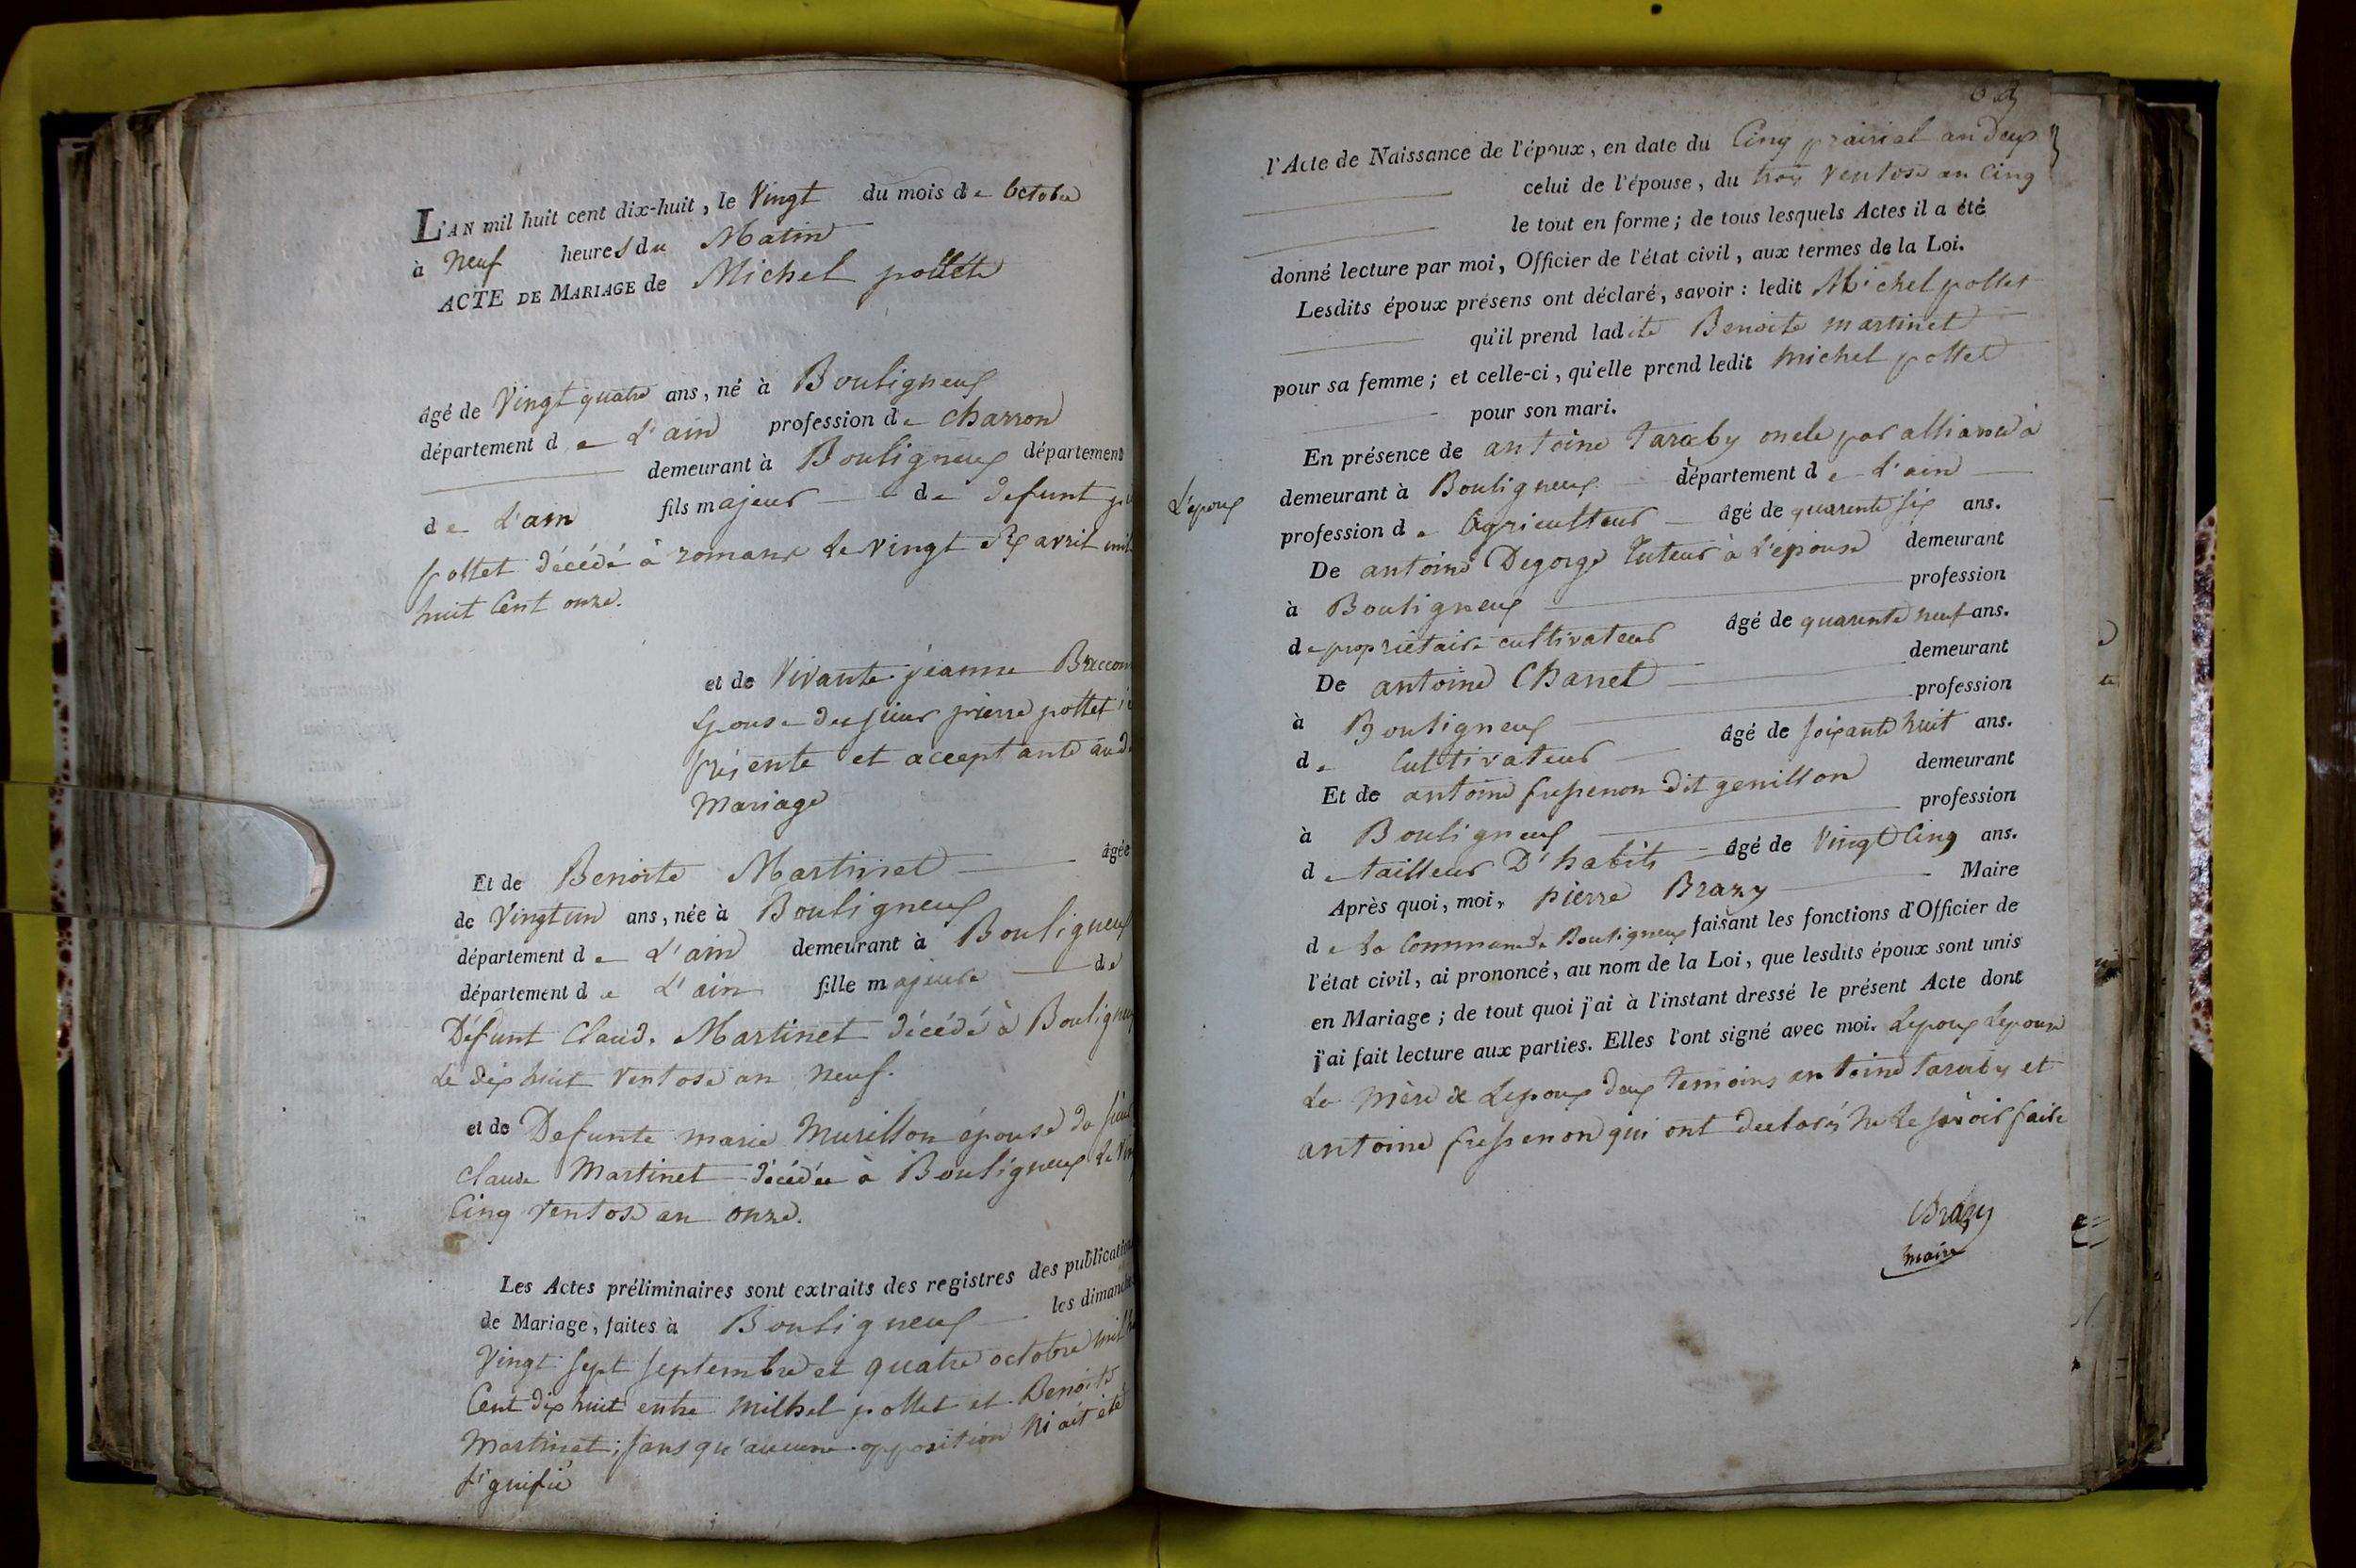 L'AN mil huit cent dix-huit, le Vingt du mois de Octobre
à Neuf heures du Matin
ACTE DE MARIAGE de Michel pollet
âgé de Vingt quatre ans, né à Bouligneux
département de L'ain profession de charron
demeurant à Bouligneux département
de L'ain fils majeur de defunt
pollet décédé à romans le vingt six avril mil
huit Cent onze.
et de Vivante jeanne
Epouse du sieur pierre pollet
présente et acceptante
Mariage
Et de Benoite Martinet âgée
de Vingt un ans, née à Bouligneux
département de L'ain demeurant à Bouligneux
département de L'ain fille majeure de
Défunt Claud. Martinet décédé à Bouligneux
Le dix huit Ventose an Neuf.
et de Defunte marie Murillon épouse du sieur
Claude Martinet décédée à Bouligneux le
Cinq Ventose an onze.
Les Actes préliminaires sont extraits des registres des publication
de Mariage, faites à Bouligneux les dimanches
Vingt sept septembre et quatre octobre mil
Cent dix huit entre Michel pollet et Benoite
Martinet; sans qu'aucune opposition ni ait été
signifié
l'Acte de Naissance de l'époux, en date du Cinq prairial an Deux
celui de l'épouse, du trois Ventose an Cinq
le tout en forme; de tous lesquels Actes il a été
donné lecture par moi, Officier de l'état civil, aux termes de la Loi.
Lesdits époux présens ont déclaré, savoir: ledit Michel pollet
qu'il prend ladite Benoite martinet
pour sa femme; et celle-ci, qu'elle prend ledit michel pollet
pour son mari.
En présence de antoine Taraby oncle par alliance à
L'epoux demeurant à Bouligneux département de L'ain
profession de Agriculteur âgé de quarente six ans.
De antoine Degorge Tuteur à L'epouse demeurant
à Bouligneux profession
de propriétaire cultivateur âgé de quarente neuf ans.
De antoine Chanel demeurant
à Bouligneux profession
de Cultivateur âgé de soixante huit ans.
Et de antoine fressenon dit genillon demeurant
à Bouligneux profession
de tailleur D'habits âgé de Vingt Cinq ans.
Après quoi, moi, pierre Brazy Maire
de la Commune de Bouligneux faisant les fonctions d'Officier de
l'état civil, ai prononcé, au nom de la Loi, que lesdits époux sont unis
en Mariage; de tout quoi j'ai à l'instant dressé le présent Acte dont
j'ai fait lecture aux parties. Elles l'ont signé avec moi. Lepoux Lepouse
La Mère de Lepoux deux temoins antoine Taraby et
antoine fressenon qui ont declarés ne le savoir faire
Brazy
maire